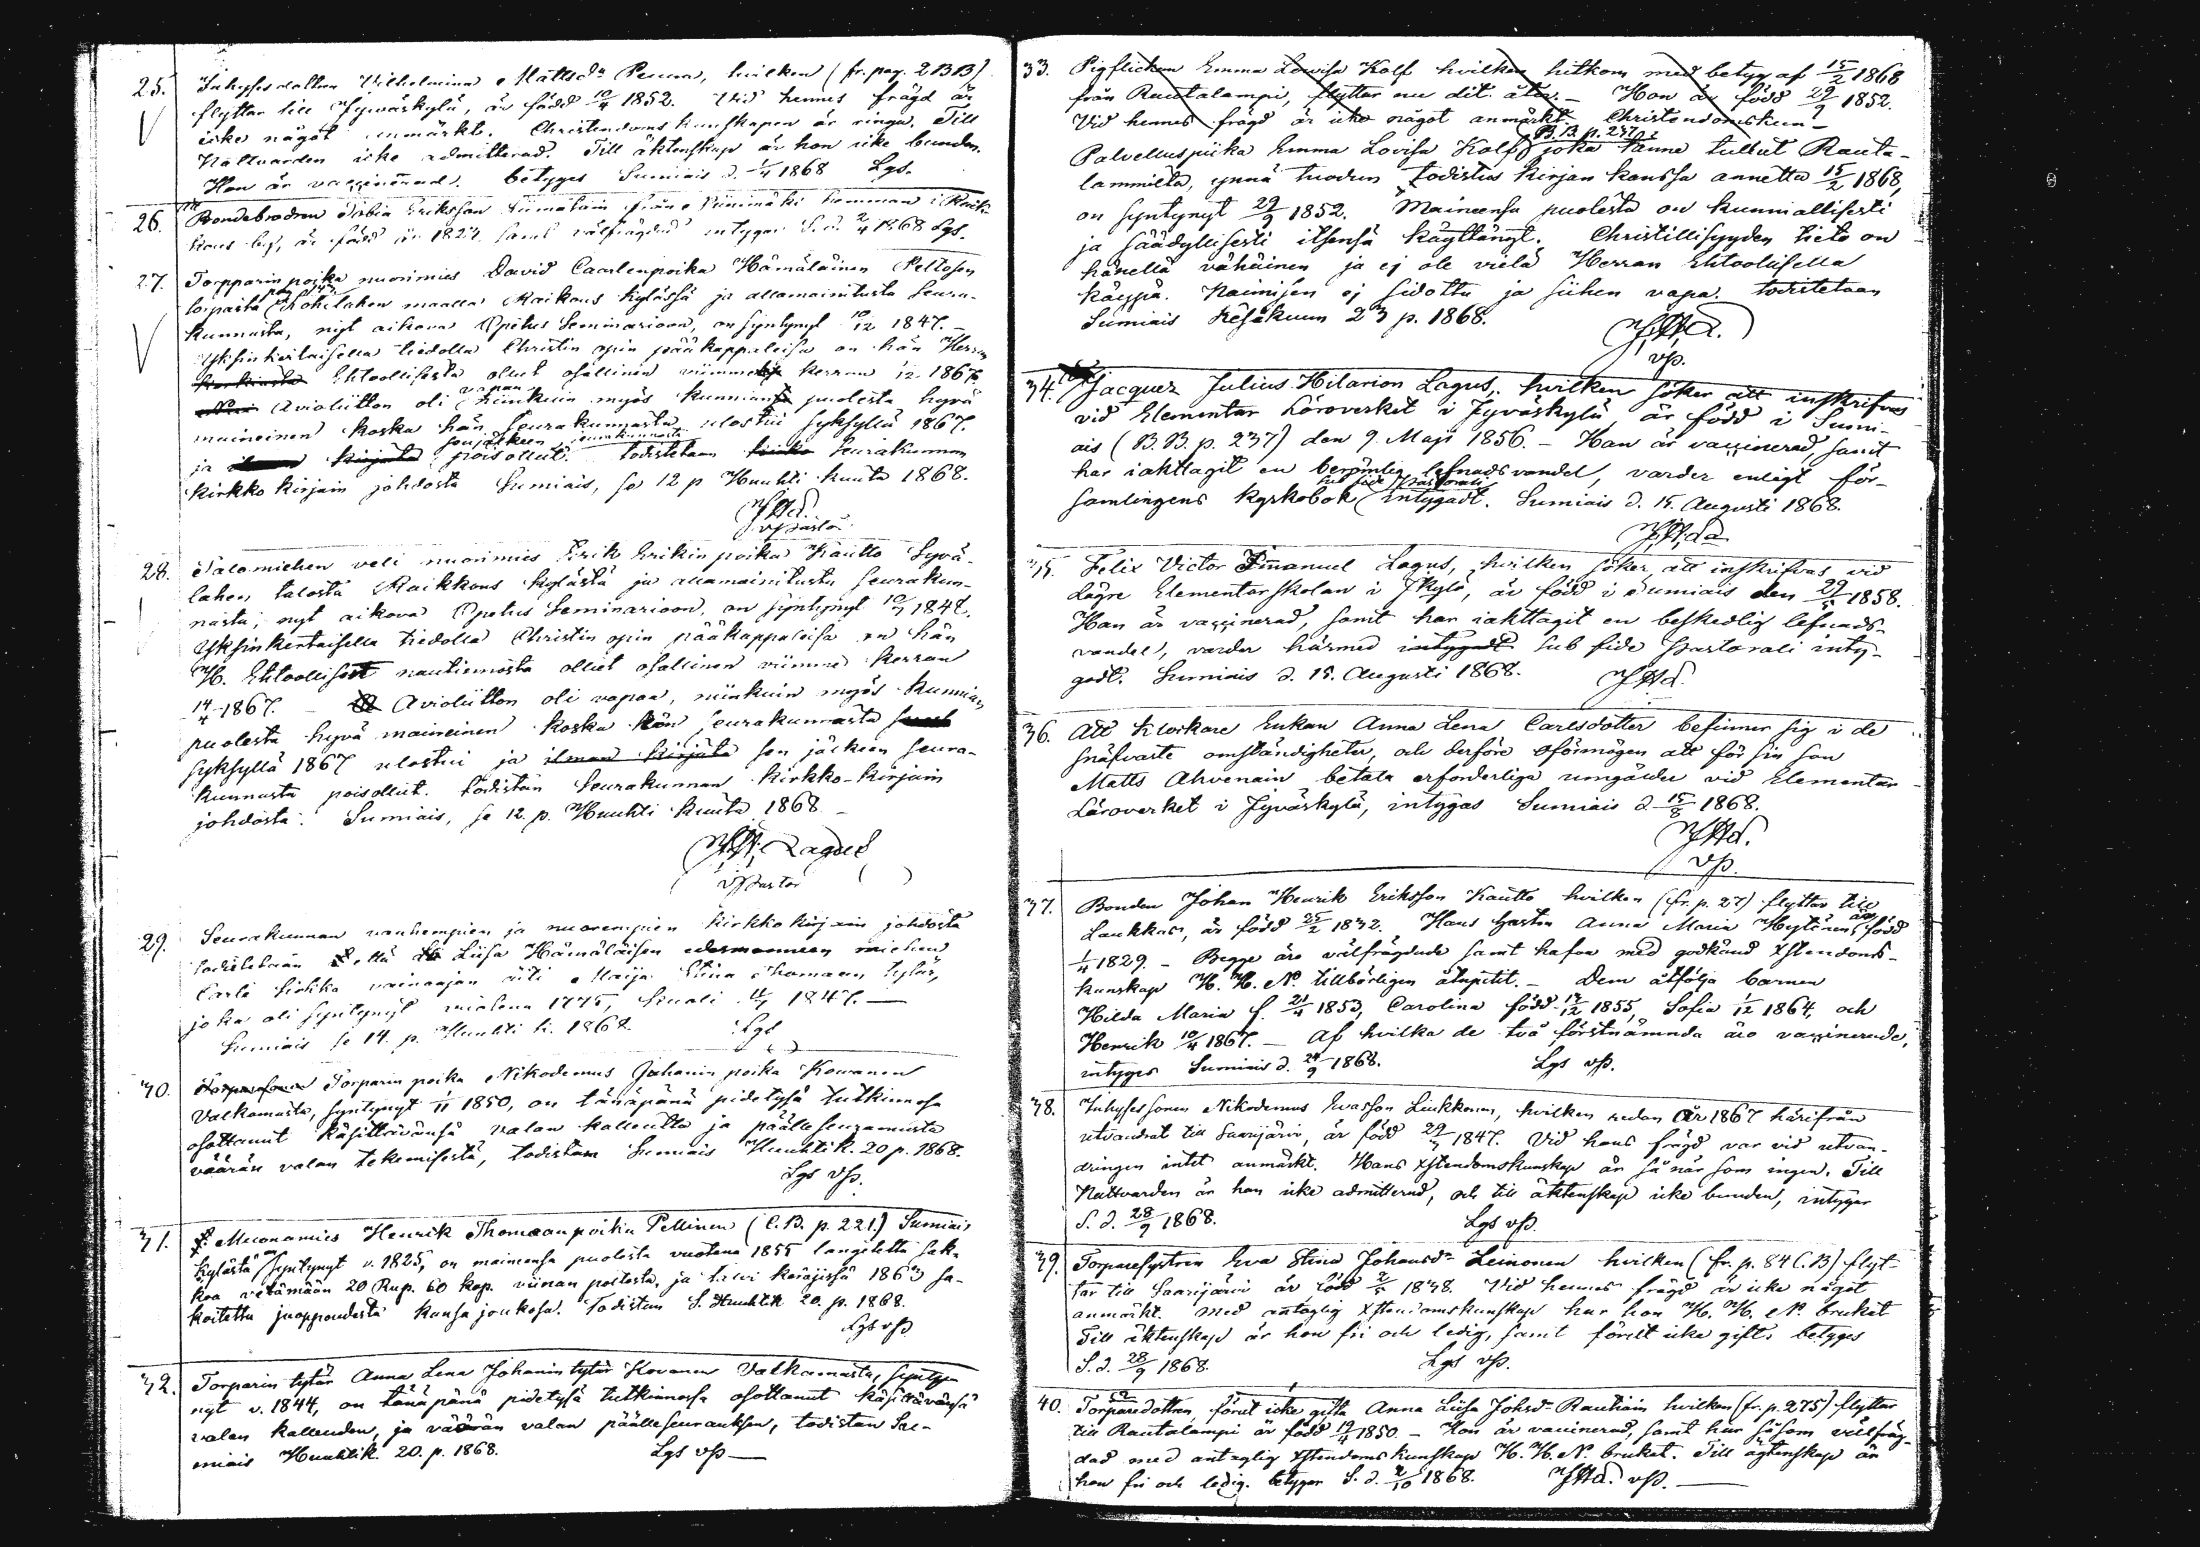 25. Inhyses dottren Vilhelmina Mattsdr Penna, hvilken (fr. pag. 213 B)
flyttar till Jyväskylä, är född 10/4 1852. Vid hennes frägd är
icke något anmärkt. Christendoms kunskapen är ringa. Till
Nattvarden icke admitterad. Till äktenskap är hon icke bunden.
Hon är vaccinerad. betyges Sumiais d. 1/4 1868 Lgs.
26. Bondebrodren Eriksson från hemman i
är född år 1827 samt välfrägdad intygar S. d. 2/4 1868 Lgs.
27. Torpparin poika nuorimies David Caarlenpoika Hämäläinen Peltosen
torpasta maalla Raikaus kylässä ja allamainitusta Seura-
kunnasta, nyt aikova Opetus Seminarioon, on syntynyt 10/12 1847. –
Yksinkertaisella tiedolla Christin opin pääkappaleisa on hän Herran
Ehtoollisesta ollut osallinen viimme kerran 1867.
Avioliitton oli vapaa niinkuin myös kunnian puolesta hyvä
maineinen koska hän Seurakunnasta ulostui syksyllä 1867.
ja sen jälkeen seurakunnasta poisollut. todistetaan Seurakunnan
kirkko kirjain johdosta Sumiais, se 12 p Huuhti kuuta 1868.
28. Talomiehen veli nuorimies Erik Erikin poika Kautto Syvä-
lahen talosta Raikkaus kylästä ja allamainitusta seurakun-
nasta, nyt aikova Opetus Seminarioon, on syntynyt 10/7 1848.
Yksinkertaisella tiedolla Christin opin pääkappaleisa on hän
H. Ehtoollisen nautiemösta ollut osallinen viimme kerran
14/4 1867. – Avioliitton oli vapaa, niinkuin myös kunnian
puolesta hyvä maineinen koska hän seurakunnasta
syksyllä 1867 ulostui ja ilman kirjata sen jälkeen seura-
kunnasta poisollut. todistan Seurakunnan kirkko-kirjain
johdosta. Sumiais, se 12. p. Huuhti kuuta 1868 –
Lagus
v Pastor
29. Seurakunnan vanhempien ja nuorempien kirkkokirjain johdosta
todistetaan että Liisa Hämäläisen miehen
Carle vainaajan äiti Maija Stina Thomaan tytär,
joka oli syntynyt vuotena 1775, kuoli 1847. –
Sumiais se 14. p. Huuhti k. 1868. Lgs
30. Torparin poika Nikodemus Johanin poika Kovanen
Valkamasta, syntynyt 1/11 1850, on tänäpänä pidetysä tutkinnosa
osottanut käsittävänsä valan kalleutta ja päälle seuraamista
väärän valan tekemisestä, todistan Sumiais Huuhtik. 20 p. 1868.
Lgs vp.
31. Muonamies Henrik Thomaanpoika Pellinen (C.B. p. 221.) Sumiais
kylästä on syntynyt v. 1825, on maineensa puolesta vuotena 1855 langetettu sak-
koa vetämään 20 Rup. 60 kop. viinan poltosta, ja talvi käräjissä 1863 sa-
koitettu juoppoudesta kansa joukosa. Todistan S. Huuhtik 20. p. 1868.
Lgs vp
32. Torparin tytär Anna Lena Johanin tytär Kovanen Valkamasta, synty-
nyt v. 1844, on tänäpänä pidetyssä tutkinnossa osottanut käsittävänsä
valan kalleuden, ja väärän valan päälle seurauksen, todistan Su-
miais Huuhtik. 20. p. 1868. Lgs vp –
33. Pigflickan Emma Lovisa Kolf hvilken hitkom med betyg af 15/2 1868
från Rautalampi, flyttar nu dit åter. – Hon är född 29/9 1852.
Vid hennes frägd är icke något anmärkt. Christendomskun-
Palvelluspiika Emma Lovisa Kolf (B.B. p. 237) joka tänne tullut Rauta-
lammilta, ynnä tuodun todistus kirjan kanssa annettu 15/2 1868,
on syntynyt 29/9 1852. Maineensa puolesta on kunniallisesti
ja säädyllisesti itsensä käyttänyt. Christillisyyden tieto on
hänellä vähäinen ja ej ole vielä Herran Ehtoollisella
käypä. Naimisen ej sidottu ja siihen vapa. todistetaan
Sumiais Kesäkuun 23 p. 1868.
vp.
34. Jacques Julius Hilarion Lagus, hvilken söker att inskrifvas
vid Elementar Läroverket i Jyväskylä är född i Sumi-
ais (B.B. p. 237) den 9. Maji 1856. – Han är vaccinerad, samt
har iakttagit en berömlig lefnadsvandel, varder enligt för-
samlingens kyrkobok sub fide pastorali intygadt. Sumiais d. 15. Augusti 1868.
35. Felix Victor Emanuel Lagus, hvilken söker att inskrifvas vid
Lägre Elementarskolan i Jkylä, är född i Sumiais den 29/5 1858.
Han är vaccinerad, samt har iakttagit en beskedlig lefnads-
vandel, varder härmed intygadt sub fide pastorali inty-
gadt. Sumiais d. 15. Augusti 1868.
36. Att Klockare Enkan Anna Lena Carlsdotter befinner sig i de
snäfvaste omständigheter, och derföre oförmögen att för sin son
Matts Ahvenain betala erforderliga umgälder vid Elementar
Läroverket i Jyväskylä, intygas Sumiais d. 15/8 1868.
vp.
37. Bonden Johan Henrik Eriksson Kautto hvilken (fr. p. 27) flyttar till
Laukkas, är född 25/2 1832. Hans hustru Anna Maria Hytönen är född
1/4 1829. – Begge äro välfrägdade samt hafva med godkänd Xstendoms-
kunskap H. H. N. tillbörligen åtnjutit. – Dem åtfölja barnen
Hilda Maria f. 21/4 1853, Carolina född 14/12 1855, Sofia 1/12 1864, och
Henrik 10/4 1867. – Af hvilka de två förstnämnda äro vaccinerade,
intyges Sumiais d. 24/9 1868. Lgs vp.
38. Inhyses sonen Nikodemus Evasson Liukkonen, hvilken redan år 1867 härifrån
utvandrat till Saarijärvi, är född 29/7 1847. Vid hans frägd var vid utvan-
dringen intet anmärkt. Hans Xstendomskunskap är så när som ingen. Till
Nattvarden är han icke admitterad, och till äktenskap icke bunden, intygar
S. d. 28/9 1868. Lgs vp.
39. Torparesystren Eva Stina Johansdr Leinonen hvilken (fr. p. 84 C.B) flyt-
tar till Saarijärvi är född 2/5 1838. Vid hennes frägd är icke något
anmärkt. Med antaglig Xstendomskunskap har hon H. H. N. brukat
Till äktenskap är hon fri och ledig, samt förut icke gift. betyges
S. d. 28/9 1868. Lgs vp.
40. Torparedottren förut icke gifta Anna Liisa Johsdr Rautiain hvilken (fr. p. 275) flyttar
till Rautalampi är född 19/4 1850. – Hon är vaccinerad, samt har såsom välfräg-
dad med antaglig Xstendomskunskap H. H. N. brukat. Till ägtenskap är
hon fri och ledig. betygar S. d. 2/10 1868. vp. –